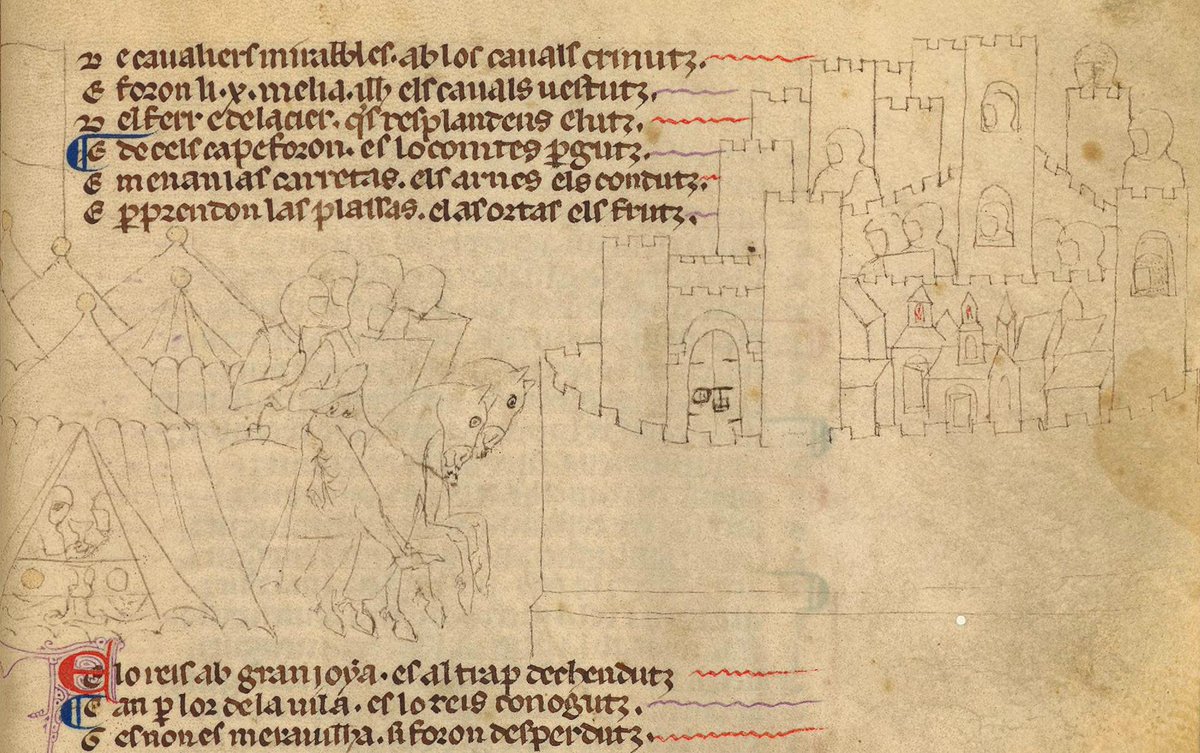 D e caualiers mirables. ab los cauals crinutz.
E foron li .x. melia. illh els cauals uestutz.
D el ferr e del acier. q̃s resplandens e lutz.
E de ceis cap e foron. es lo comtes ꝑgutz.
E menan las carretas. els arnes els condutz.
E ꝑprendon las plassas. e las ortas els frutz.
E lo reis ab gran ioya. es al trap dechendutz
E an ꝑ lor de la uila. es lo reis conogutz.
G es non es merauilha. si foron desperdutz.